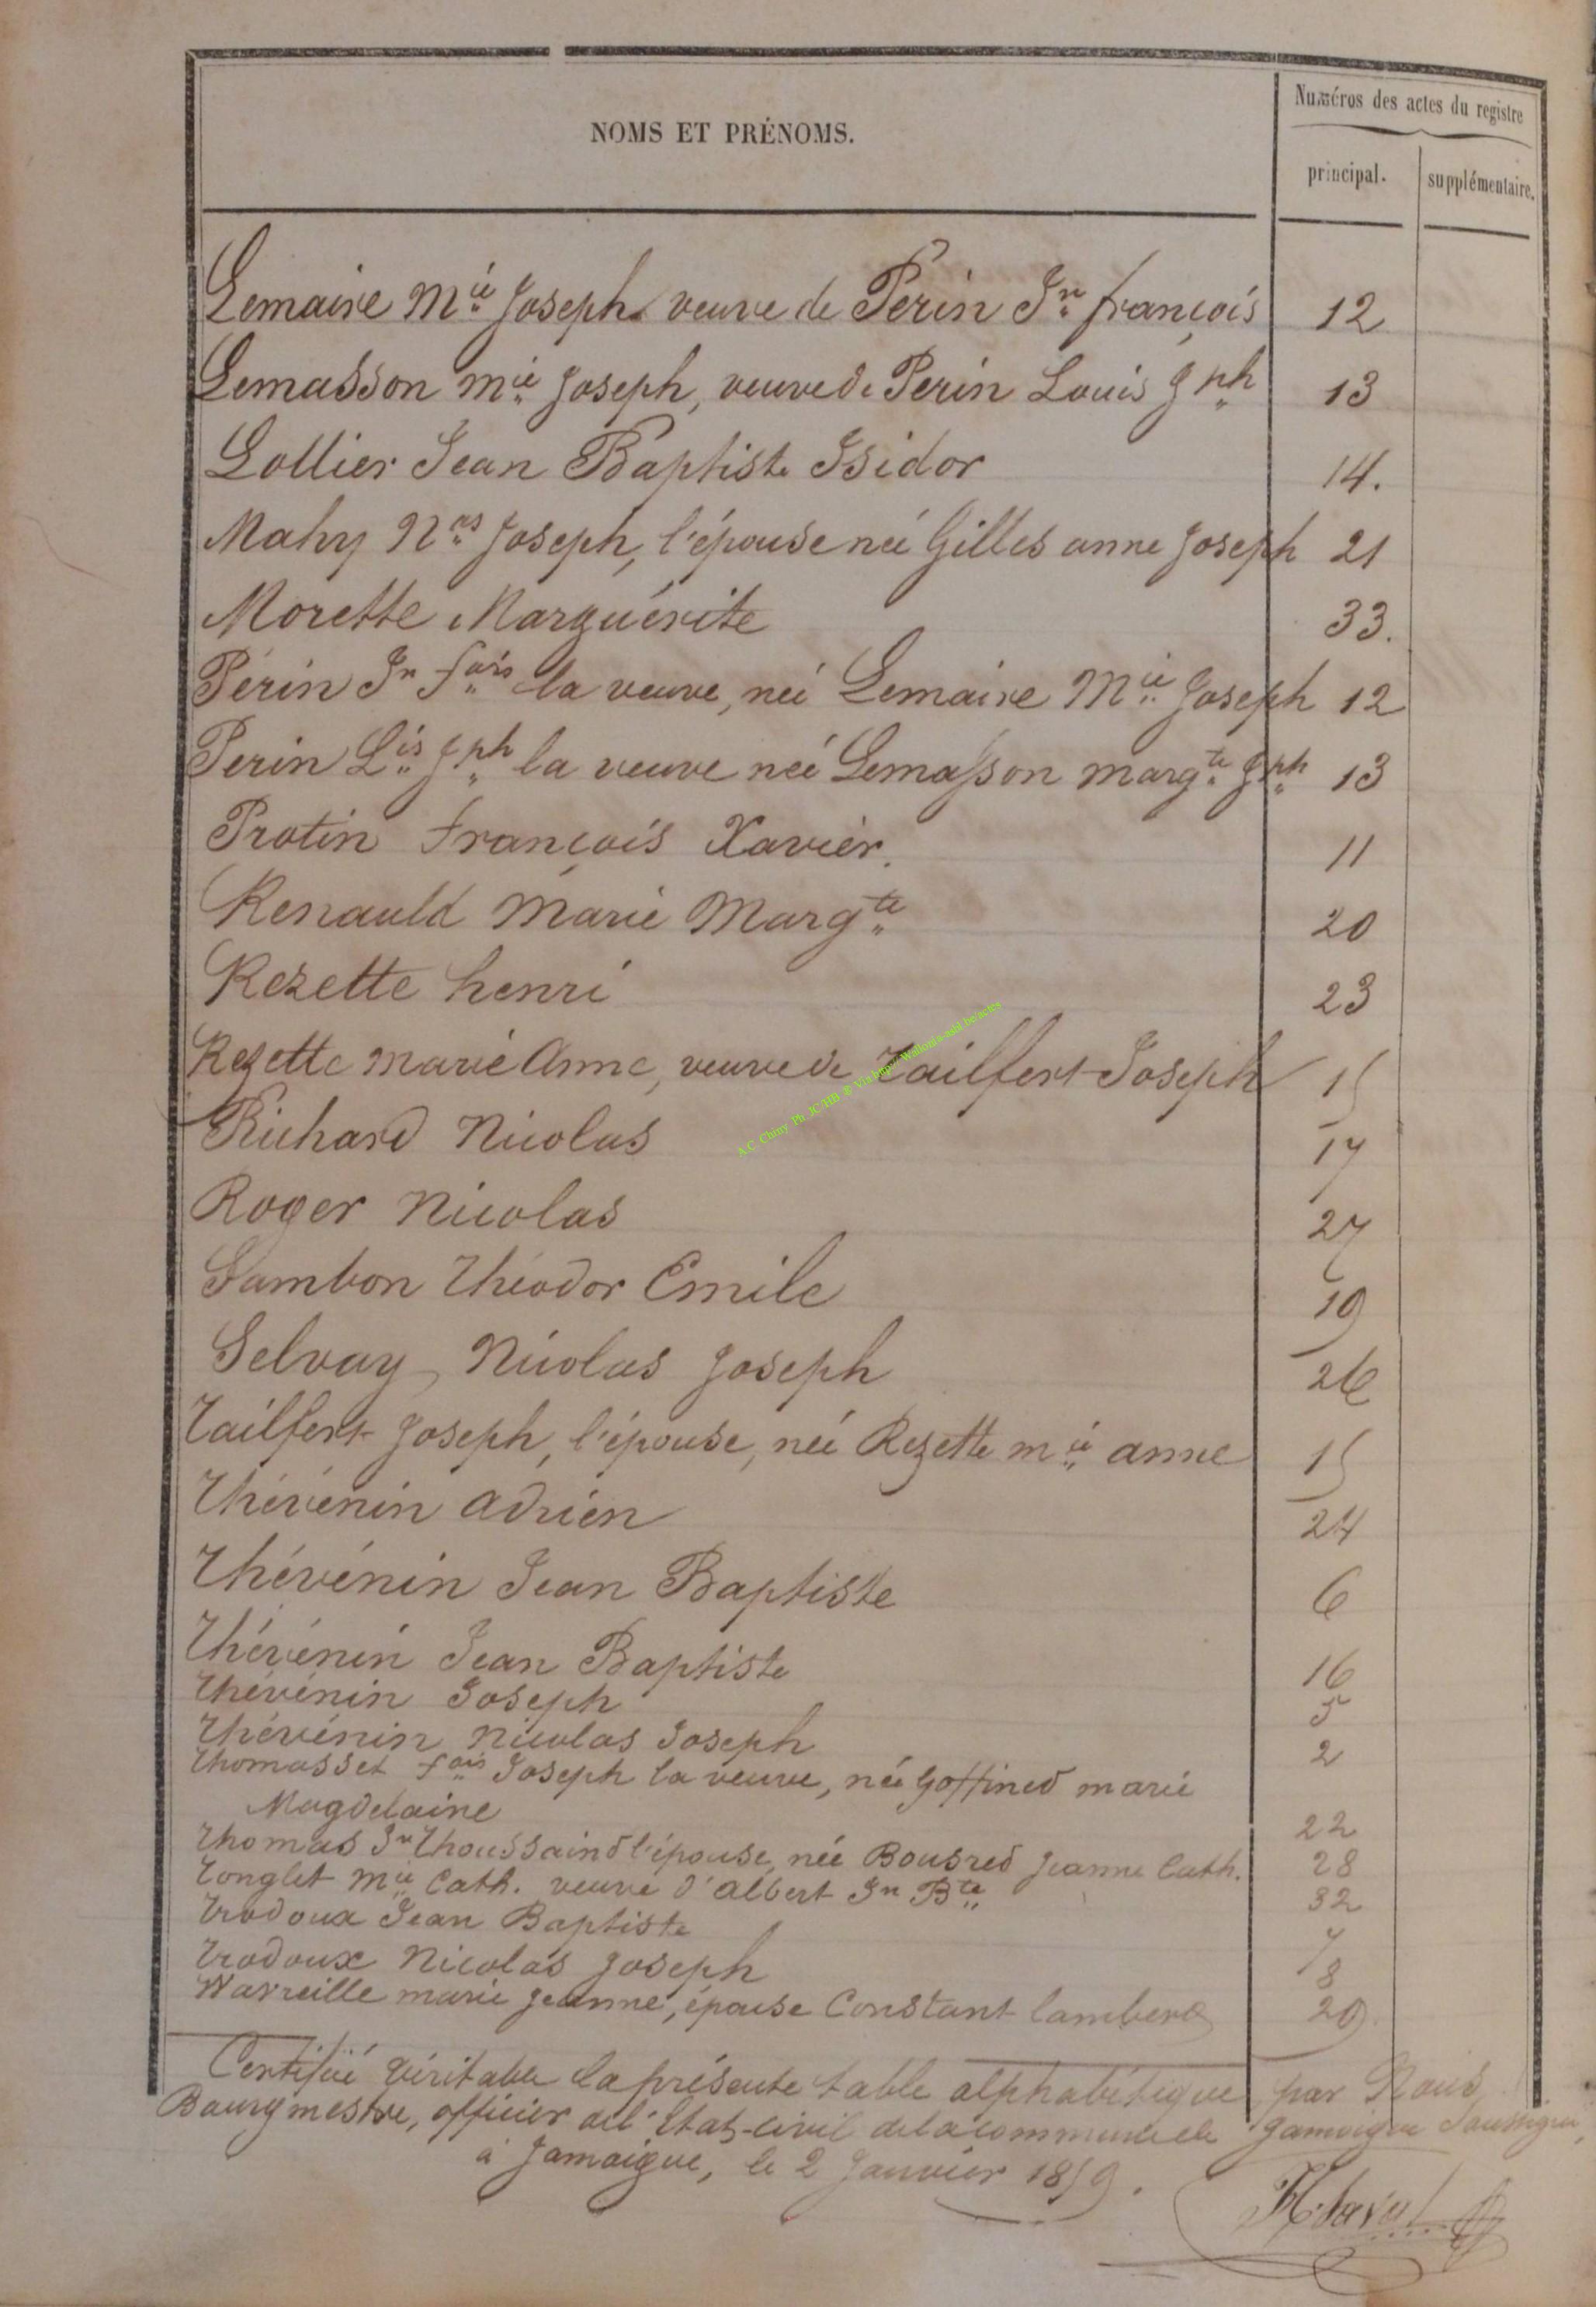 NOMS ET PRÉNOMS.
Numéros des actes du registre
principal. supplémentaire.
Lemaire Mie Joseph veuve de Perin Jn françois 12
Lemasson mie Joseph, veuve de Perin Louis Jph 13
Lollier Jean Baptiste Isidor 14.
Mahy Nas Joseph, l'épouse née Gilles anne Joseph 21
Morette Marguérite 33.
Périn Jn fois la veuve, née Lemaire Mie Joseph 12
Perin Lis Jph la veuve née Lemasson margte Jph 13
Protin françois Xavier. 11
Renauld Marie Margte 20
Rezette henri 23
Rezette marie Anne, veuve de Tailfert Joseph 15
Richard Nicolas 17
Roger Nicolas 27
Sambon Théodor Emile 19
Selvay Nicolas Joseph 26
Tailfert Joseph, l'épouse, née Rezette mie anne 15
Thévénin adrien 24
Thévénin Jean Baptiste 6
Thévénin Jean Baptiste 16
Thévénin Joseph 5
Thévénin Nicolas Joseph 2
Thomasset fois Joseph la veuve, née Goffined marie
Magdelaine 22
Thomas Jn Thoussaind l'épouse, née Bousred Jeanne Cath. 28
Tonglet Mie Cath. veuve d'albert Jn Bte 32
Trodoux Jean Baptiste 7
Trodoux Nicolas Joseph 8
Warreille marie Jeanne, épouse Constant lambert 29.
Certifié véritable la présente table alphabétique par Nous,
Bourgmestre, officier de l'Etat-civil de la commune de Jamoigne Soussigné,
à Jamoigne, le 2 Janvier 1859.
A.C Chiny Ph JC/HB © Via http://Wallonia-asbl.be/actes